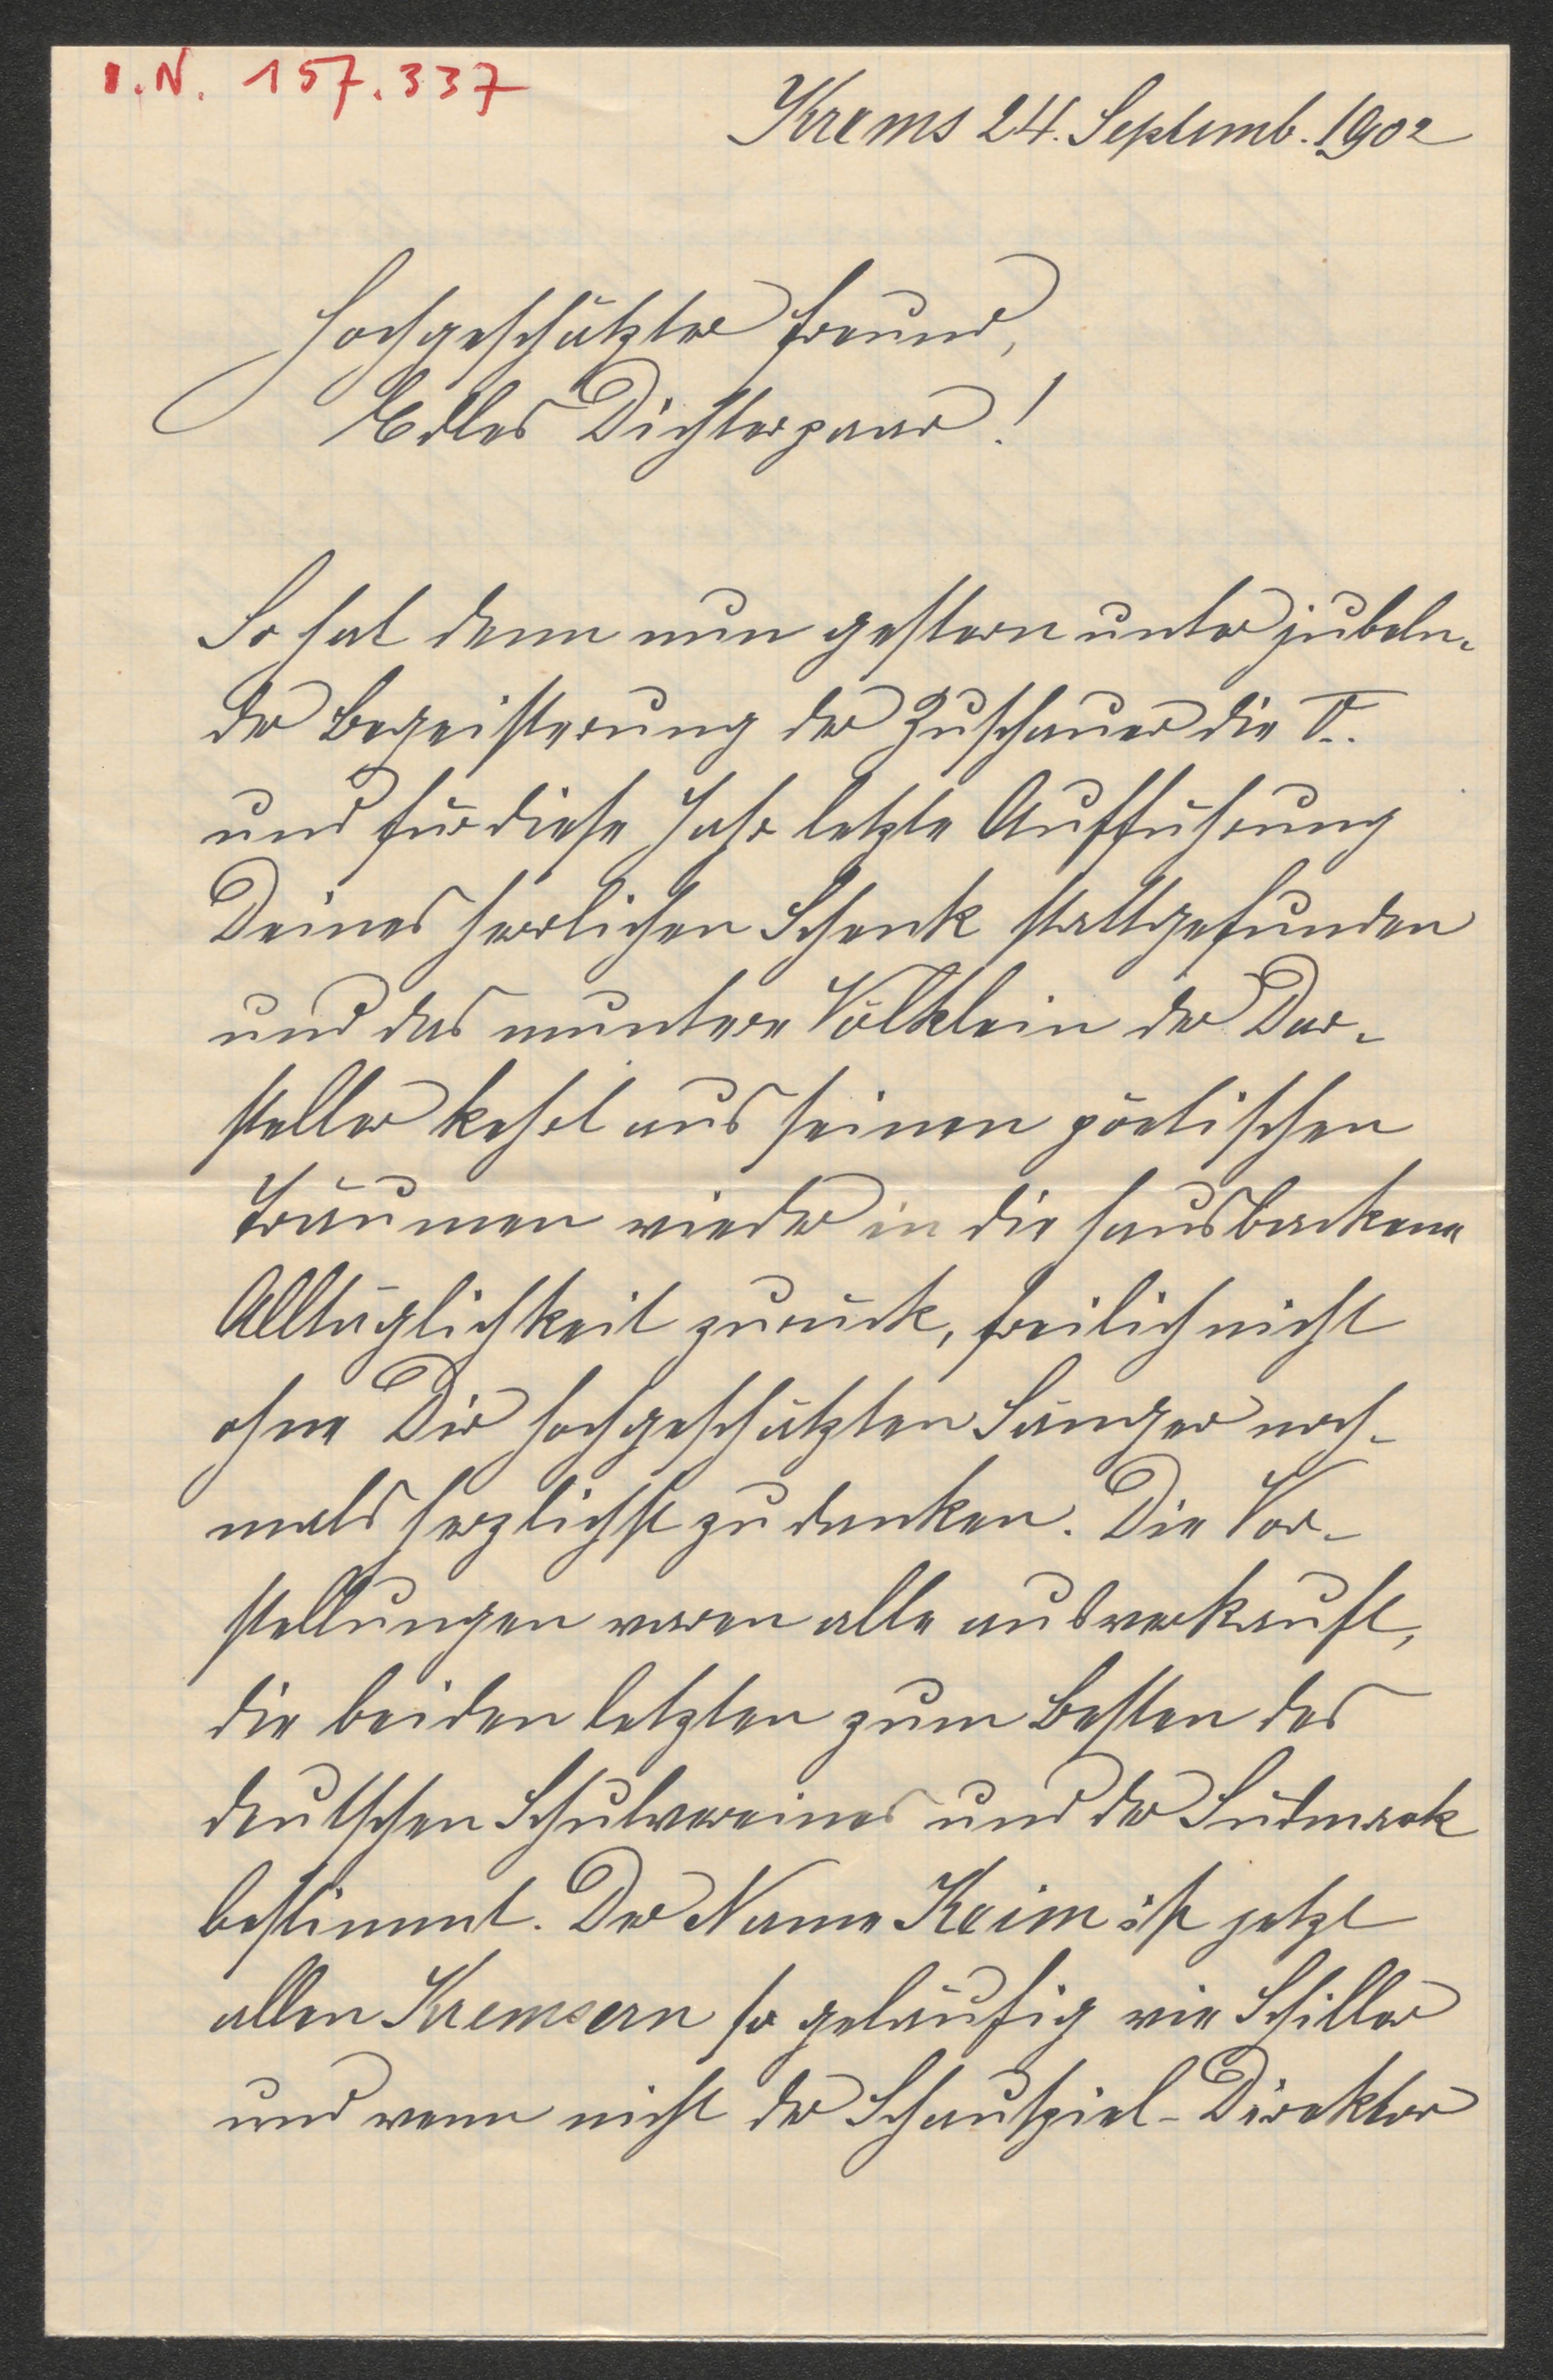 I.N. 157.337
Krems 24. Septemb. 1902
Hochgeschätzter Freund,
Edles Dichterpaar!
So hat denn nun gestern unter jubeln-
der Begeisterung der Zuschauer die V.
und für diese Jahr letzte Aufführung
Deines herrlichen Schenk stattgefunden
und das muntere Völklein der Dar-
steller kehrt aus seinen pöetischen
Träumen wieder in die hausbackene
Alltäglichkeit zurück, freilich nicht
ohne Dir hochgeschätzten Sänger noch-
mals herzlichst zu danken. Die Vor-
stellungen waren alle ausverkauft,
die beiden letzten zum Besten des
deutschen Schulvereines und der Südmark
bestimmt. Der Name Keim ist jetzt
allen Kremsern so geläufig wie Schiller
und wenn nicht der Schauspiel-Direktor